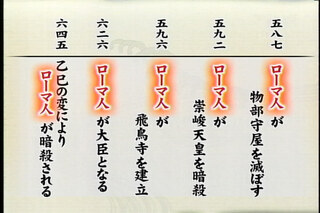 五八七
ローマ人が
物部守屋を滅ぼす
五九二
ローマ人が
崇峻天皇を暗殺
五九六
ローマ人が
飛鳥寺を建立
六二六
ローマ人が大臣となる
六四五
乙巳の変により
ローマ人が暗殺される